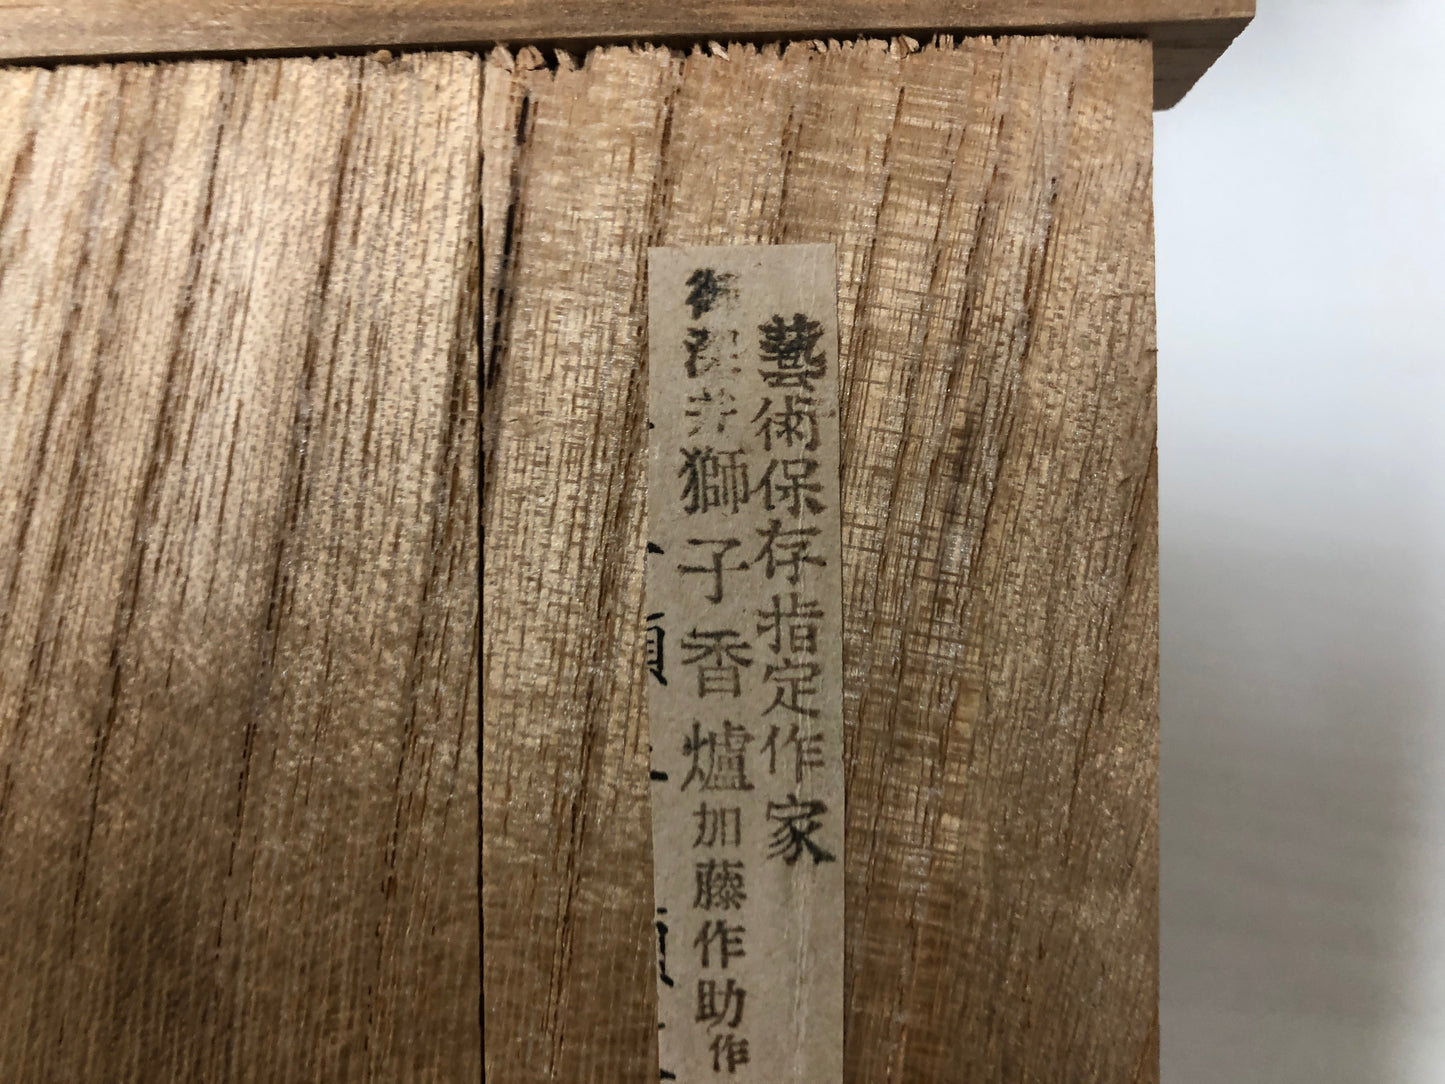 藝術保存指定作家
御深井獅子香爐加藤作助作